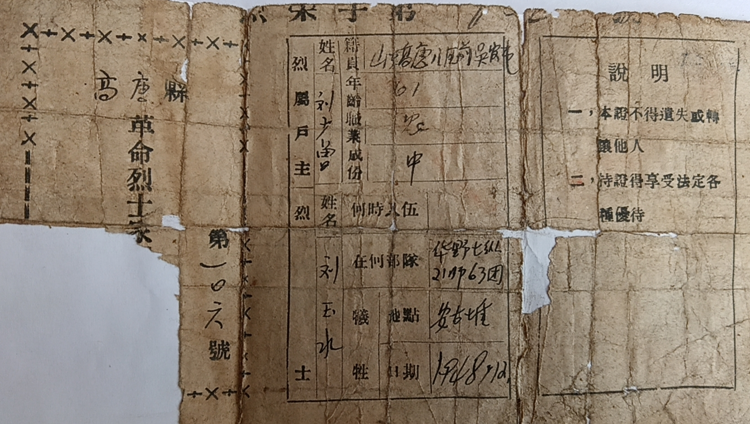 高唐縣
革命烈士家
第一四六號
烈屬戶主
姓名
刘
籍貫
山东高唐八区前吴
年齡
61
職業
农
成份
中
烈士
姓名
刘玉水
何時入伍
在何部隊
华野七纵
21师63团
犧牲地點
犧牲日期
1948.12.
說明
一，本證不得遺失或轉
讓他人
二，持證得享受法定各
種優待